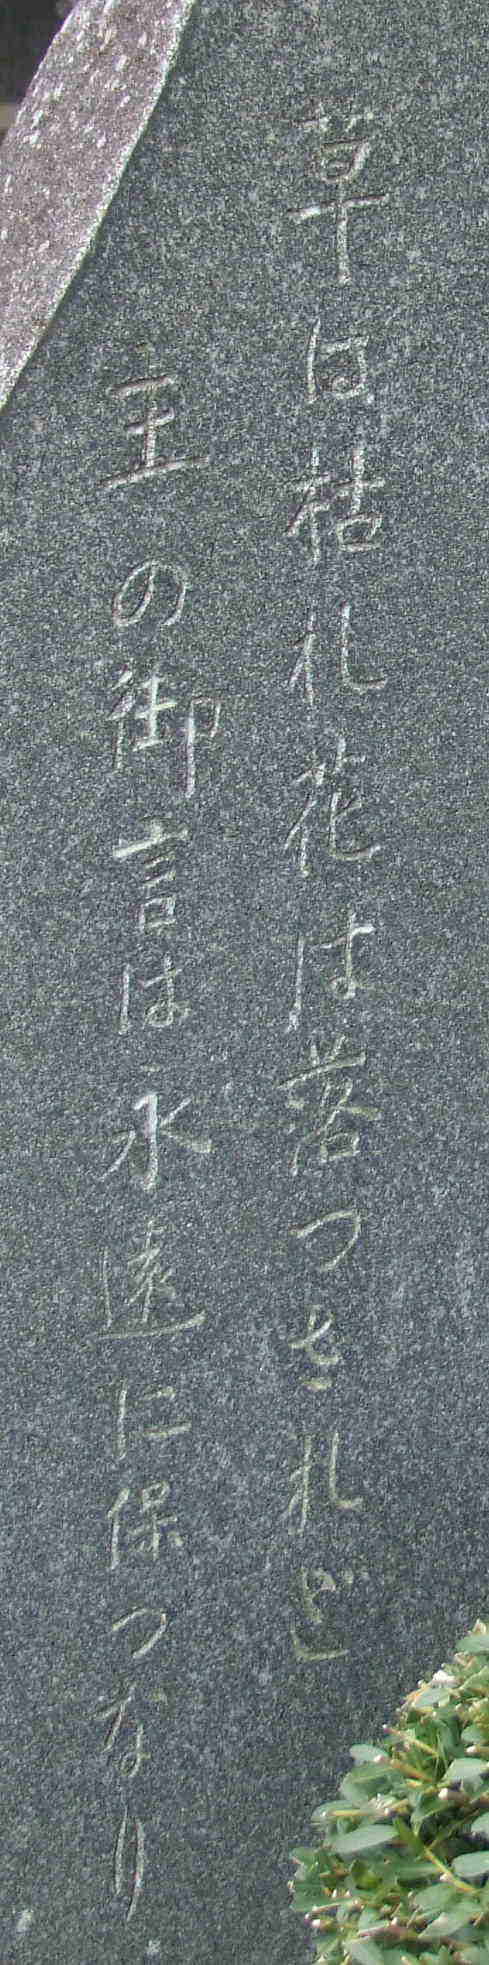 草は枯れ花は落つされど
主の御言は永遠に保つなり